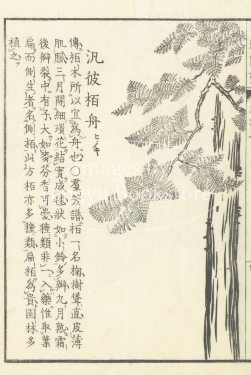 汎彼栢舟 ヒノキ
傳栢木所以宜為舟也○羣芳譜栢一名椈樹聳直皮薄
肌膩三月開細瑣花結實成毬狀如小鈴多瓣九月熟霜
後瓣裂中有子大如麥芬香可愛種類非一入藥惟取葉
扁而側生者名側栢此方栢亦多種類扁栢為貴園林多
植之